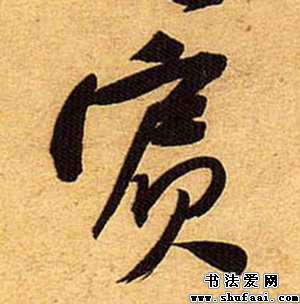 賓
书法爱网
www.shufaai.com